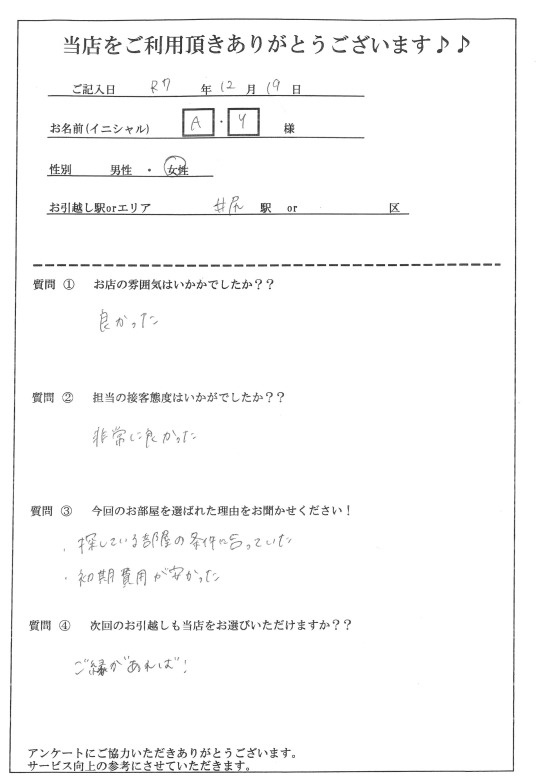 当店をご利用頂きありがとうございます♪♪
ご記入日 R7 年 12 月 19 日
お名前(イニシャル) A ・ Y 様
性別 男性 ・ 女性
お引越し駅orエリア 井尻 駅 or 区
質問 ① お店の雰囲気はいかかでしたか??
良かった
質問 ② 担当の接客態度はいかがでしたか??
非常に良かった
質問 ③ 今回のお部屋を選ばれた理由をお聞かせください!
・探している部屋の条件に合っていた
・初期費用が安かった
質問 ④ 次回のお引越しも当店をお選びいただけますか??
ご縁があれば!
アンケートにご協力いただきありがとうございます。
サービス向上の参考にさせていただきます。